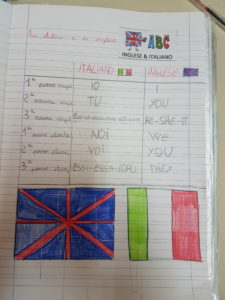 ABC
INGLESE & ITALIANO
ITALIANO INGLESE
1ª persona sing. IO I
2ª persona sing. TU YOU
3ª persona sing. HE-SHE-IT
1ª persona plurale NOI WE
2ª persona plur. VOI YOU
3ª persona plur. ESSI-ESSA-LORO THEY